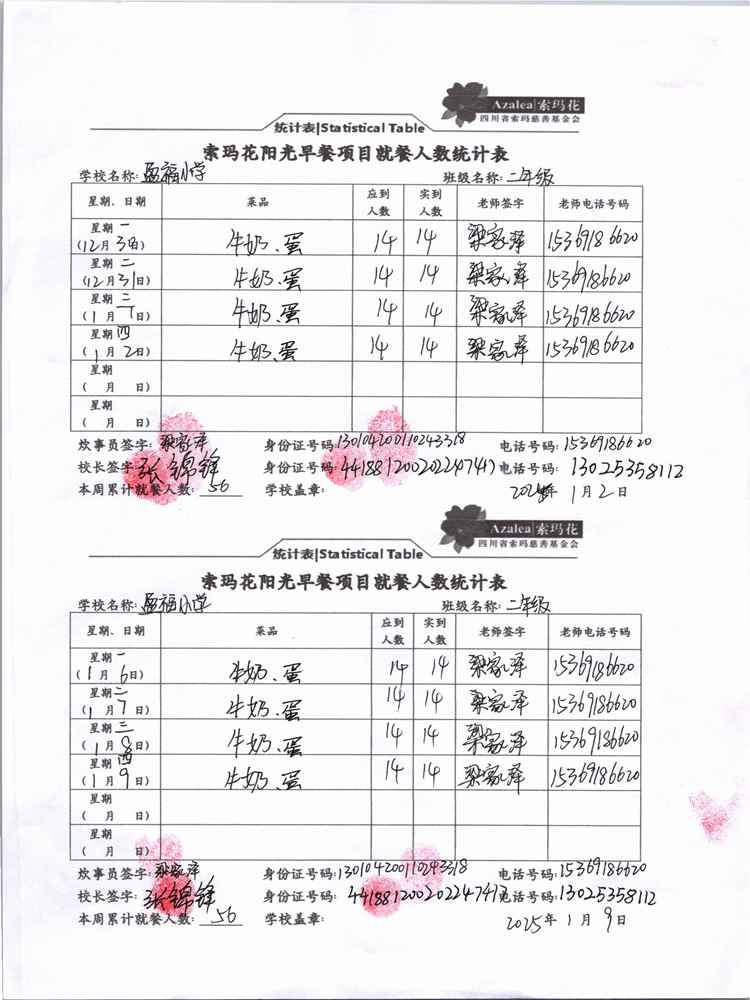 Azalea|索玛花
四川省索玛慈善基金会
统计表|Statistical Table
索玛花阳光早餐项目就餐人数统计表
学校名称: 盈福小学 班级名称: 二年级
星期、日期 菜品 应到人数 实到人数 老师签字 老师电话号码
星期一 (12月30日) 牛奶、蛋 14 14 梁家泽 15369186620
星期二 (12月31日) 牛奶、蛋 14 14 梁家泽 15369186620
星期三 (1月1日) 牛奶、蛋 14 14 梁家泽 15369186620
星期四 (1月2日) 牛奶、蛋 14 14 梁家泽 15369186620
星期 (月 日)
星期 (月 日)
炊事员签字: 梁家泽 身份证号码: 130104200110243318 电话号码: 15369186620
校长签字: 张锦锋 身份证号码: 441881200202247417 电话号码: 13025358112
本周累计就餐人数: 56 学校盖章: 年1月2日
Azalea|索玛花
四川省索玛慈善基金会
统计表|Statistical Table
索玛花阳光早餐项目就餐人数统计表
学校名称: 盈福小学 班级名称: 二年级
星期、日期 菜品 应到人数 实到人数 老师签字 老师电话号码
星期一 (1月6日) 牛奶、蛋 14 14 梁家泽 15369186620
星期二 (1月7日) 牛奶、蛋 14 14 梁家泽 15369186620
星期三 (1月8日) 牛奶、蛋 14 14 梁家泽 15369186620
星期四 (1月9日) 牛奶、蛋 14 14 梁家泽 15369186620
星期 (月 日)
星期 (月 日)
炊事员签字: 梁家泽 身份证号码: 130104200110243318 电话号码: 15369186620
校长签字: 张锦锋 身份证号码: 441881200202247417 电话号码: 13025358112
本周累计就餐人数: 56 学校盖章: 2025年1月9日